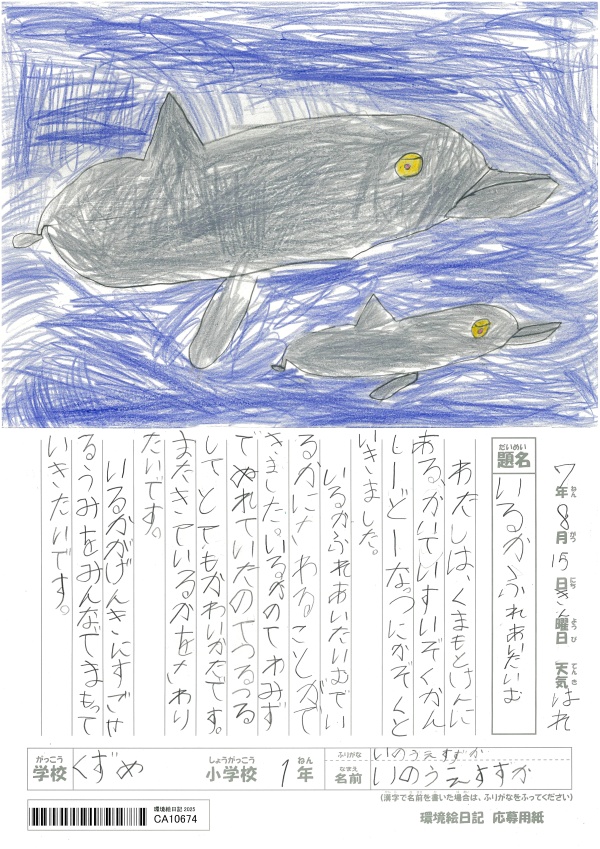 7年8月15日きん曜日 天気はれ
ねん がつ にち ようび てんき
だいめい
題名
いるかふれあいたいむ
わたしは、くまもとけんに
ある、かいていすいぞくかん
しードーなつにかぞくと
いきました。
いるかふれあいたいむでい
るかにさわることがで
きました。いるかのてわみず
でぬれていたのでつるつる
してとてもかわいかたです。
またきているかをさわり
たいです。
いるかがげんきにすごせ
るうみをみんなでまもって
いきたいです。
がっこう
学校
くずめ
しょうがっこう
小学校
1
ねん
年
ふりがな
いのうえすずか
なまえ
名前
いのうえすずか
(漢字で名前を書いた場合は、ふりがなをふってください)
環境絵日記 2025
CA10674
環境絵日記 応募用紙